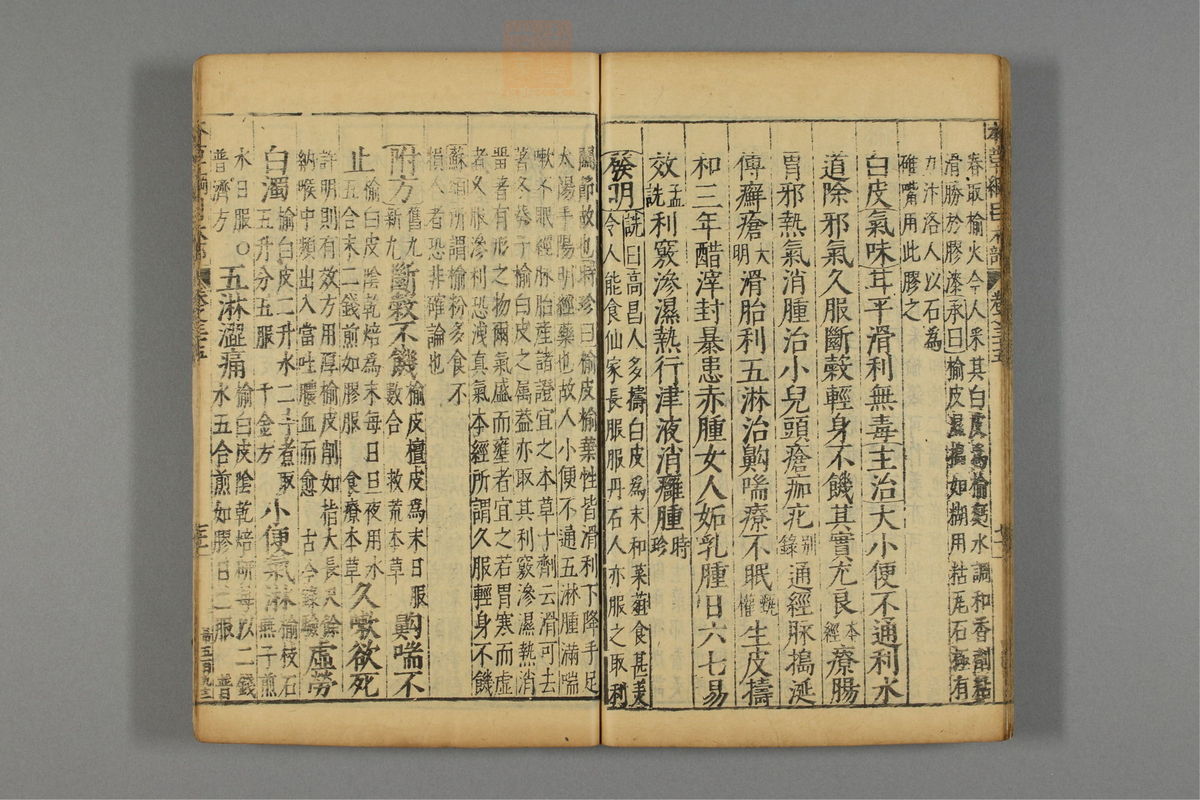 本草綱目木部 卷之三十五
春取榆火令人采其白皮爲榆麪水調和香劑黏
滑勝於膠漆承曰榆皮濕搗如糊用粘瓦石極有
力汴洛人以石爲
碓嘴用此膠之
白皮氣味甘平滑利無毒主治大小便不通利水
道除邪氣久服斷穀輕身不饑其實尤良本經療腸
胃邪熱氣消腫治小兒頭瘡痂疕別錄通經脉搗涎
傅癬瘡大明滑胎利五淋治齁喘療不眠甄權生皮擣
和三年醋滓封暴患赤腫女人妬乳腫日六七易
效孟詵利竅滲濕熱行津液消癰腫時珍
發明詵曰高昌人多擣白皮爲末和菜菹食甚美
令人能食仙家長服服丹石人亦服之取利
關節故也時珍曰榆皮榆葉性皆滑利下降手足
太陽手陽明經藥也故人小便不通五淋腫滿喘
嗽不眠經脉胎産諸證宜之本草十劑云滑可去
著冬葵子榆白皮之属葢亦取其利竅滲濕熱消
畱著有形之物爾氣盛而壅者宜之若胃寒而虛
者久服滲利恐洩真氣本經所謂久服輕身不饑
蘇頌所謂榆粉多食不
損人者恐非確論也
附方舊九新九斷穀不饑榆皮檀皮爲末日服數合 救荒本草齁喘不
止榆白皮陰乾焙爲末每日旦夜用水五合末二錢煎如膠服 食療本草久嗽欲死
許明則有效方用厚榆皮削如指大長尺餘納喉中頻出入當吐膿血而愈 古今錄驗虛勞
白濁榆白皮二升水二斗煮取五升分五服 千金方小便氣淋榆枝石燕子煎
水日服〇普濟方五淋澀痛榆白皮陰乾焙研每以二錢水五合煎如膠日二服 普
本草綱目木部 卷之三十五